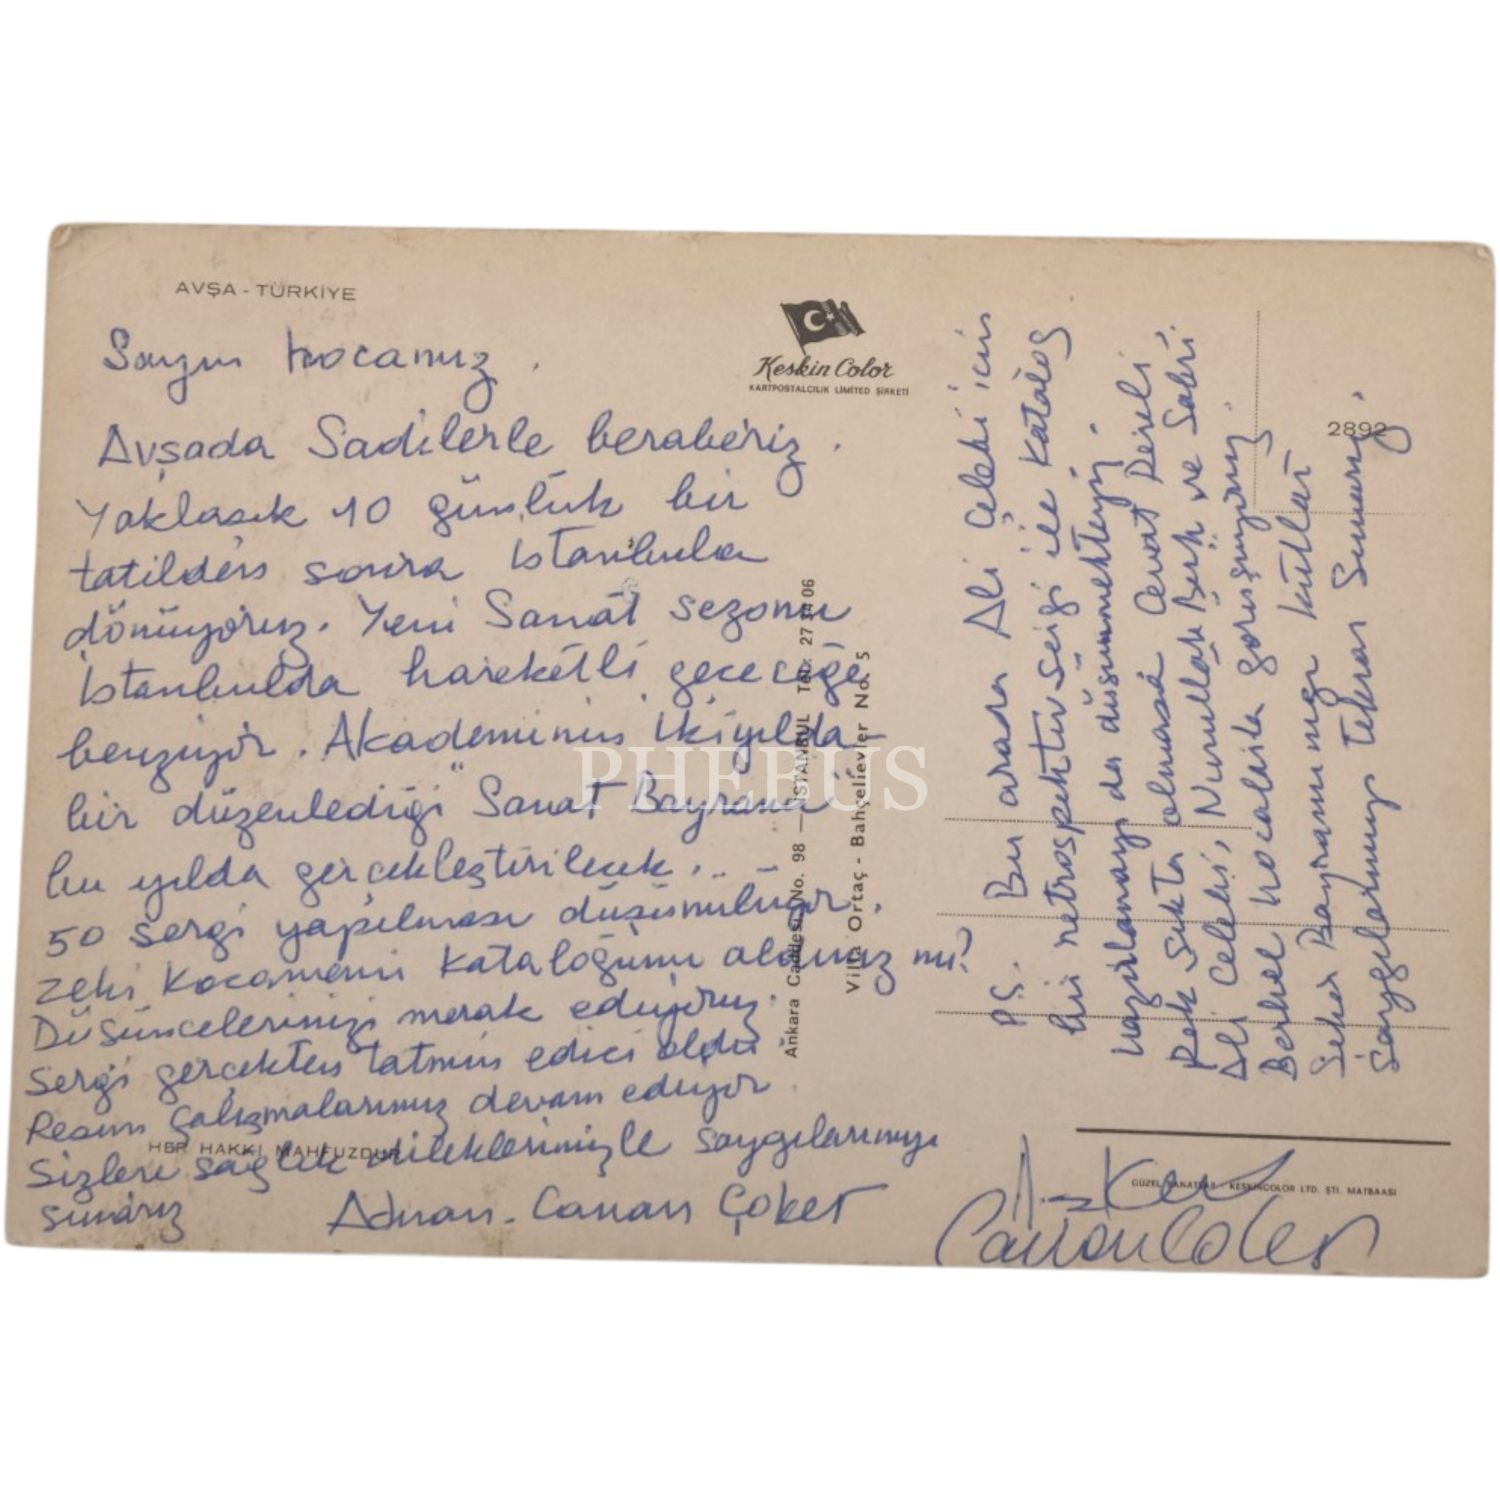 AVŞA - TÜRKİYE
Sayın Hocamız.
Avşada Sadilerle beraberiz.
Yaklaşık 10 günlük bir
tatilden sonra İstanbula
dönüyoruz. Yeni Sanat sezonu
İstanbulda hareketli geçeceğe
benziyor. Akademinin İkiyılda
bir düzenlediği "Sanat Bayramı
bu yılda gerçekleştirilecek..
50 sergi yapılması düşünülüyor.
Zeki Kocamemi kataloğunu aldınız mı?
Düşüncelerinizi merak ediyoruz.
Sergi gerçekten tatmin edici oldu
Resim çalışmalarımız devam ediyor.
Sizlere sağlık dileklerimizle saygılarımızı
sunarız
Adnan - Canan Çoker
HER HAKKI MAHFUZDUR
Keskin Color
KARTPOSTALCILIK LIMITED ŞİRKETİ
Ankara Caddesi No. 98 — İSTANBUL Tel: 27 34 06
Villa Ortaç - Bahçelievler No. 5
2892
P.S. Bu arada Ali Çelebi için
bir retrospektiv sergi ile katalog
hazırlamayı da düşünmekteyiz.
Pek sıkta olmasa Cevat Dereli
Ali Çelebi, Nurullah Berk ve Sabri
Berkel hocalarla görüşüyoruz.
Şeker Bayramınızı kutlar
Saygılarımızı tekrar Sunarız.
GÜZEL SANATLAR - KESKİNCOLOR LTD. ŞTİ. MATBAASI
Canan Coker
PHEBUS